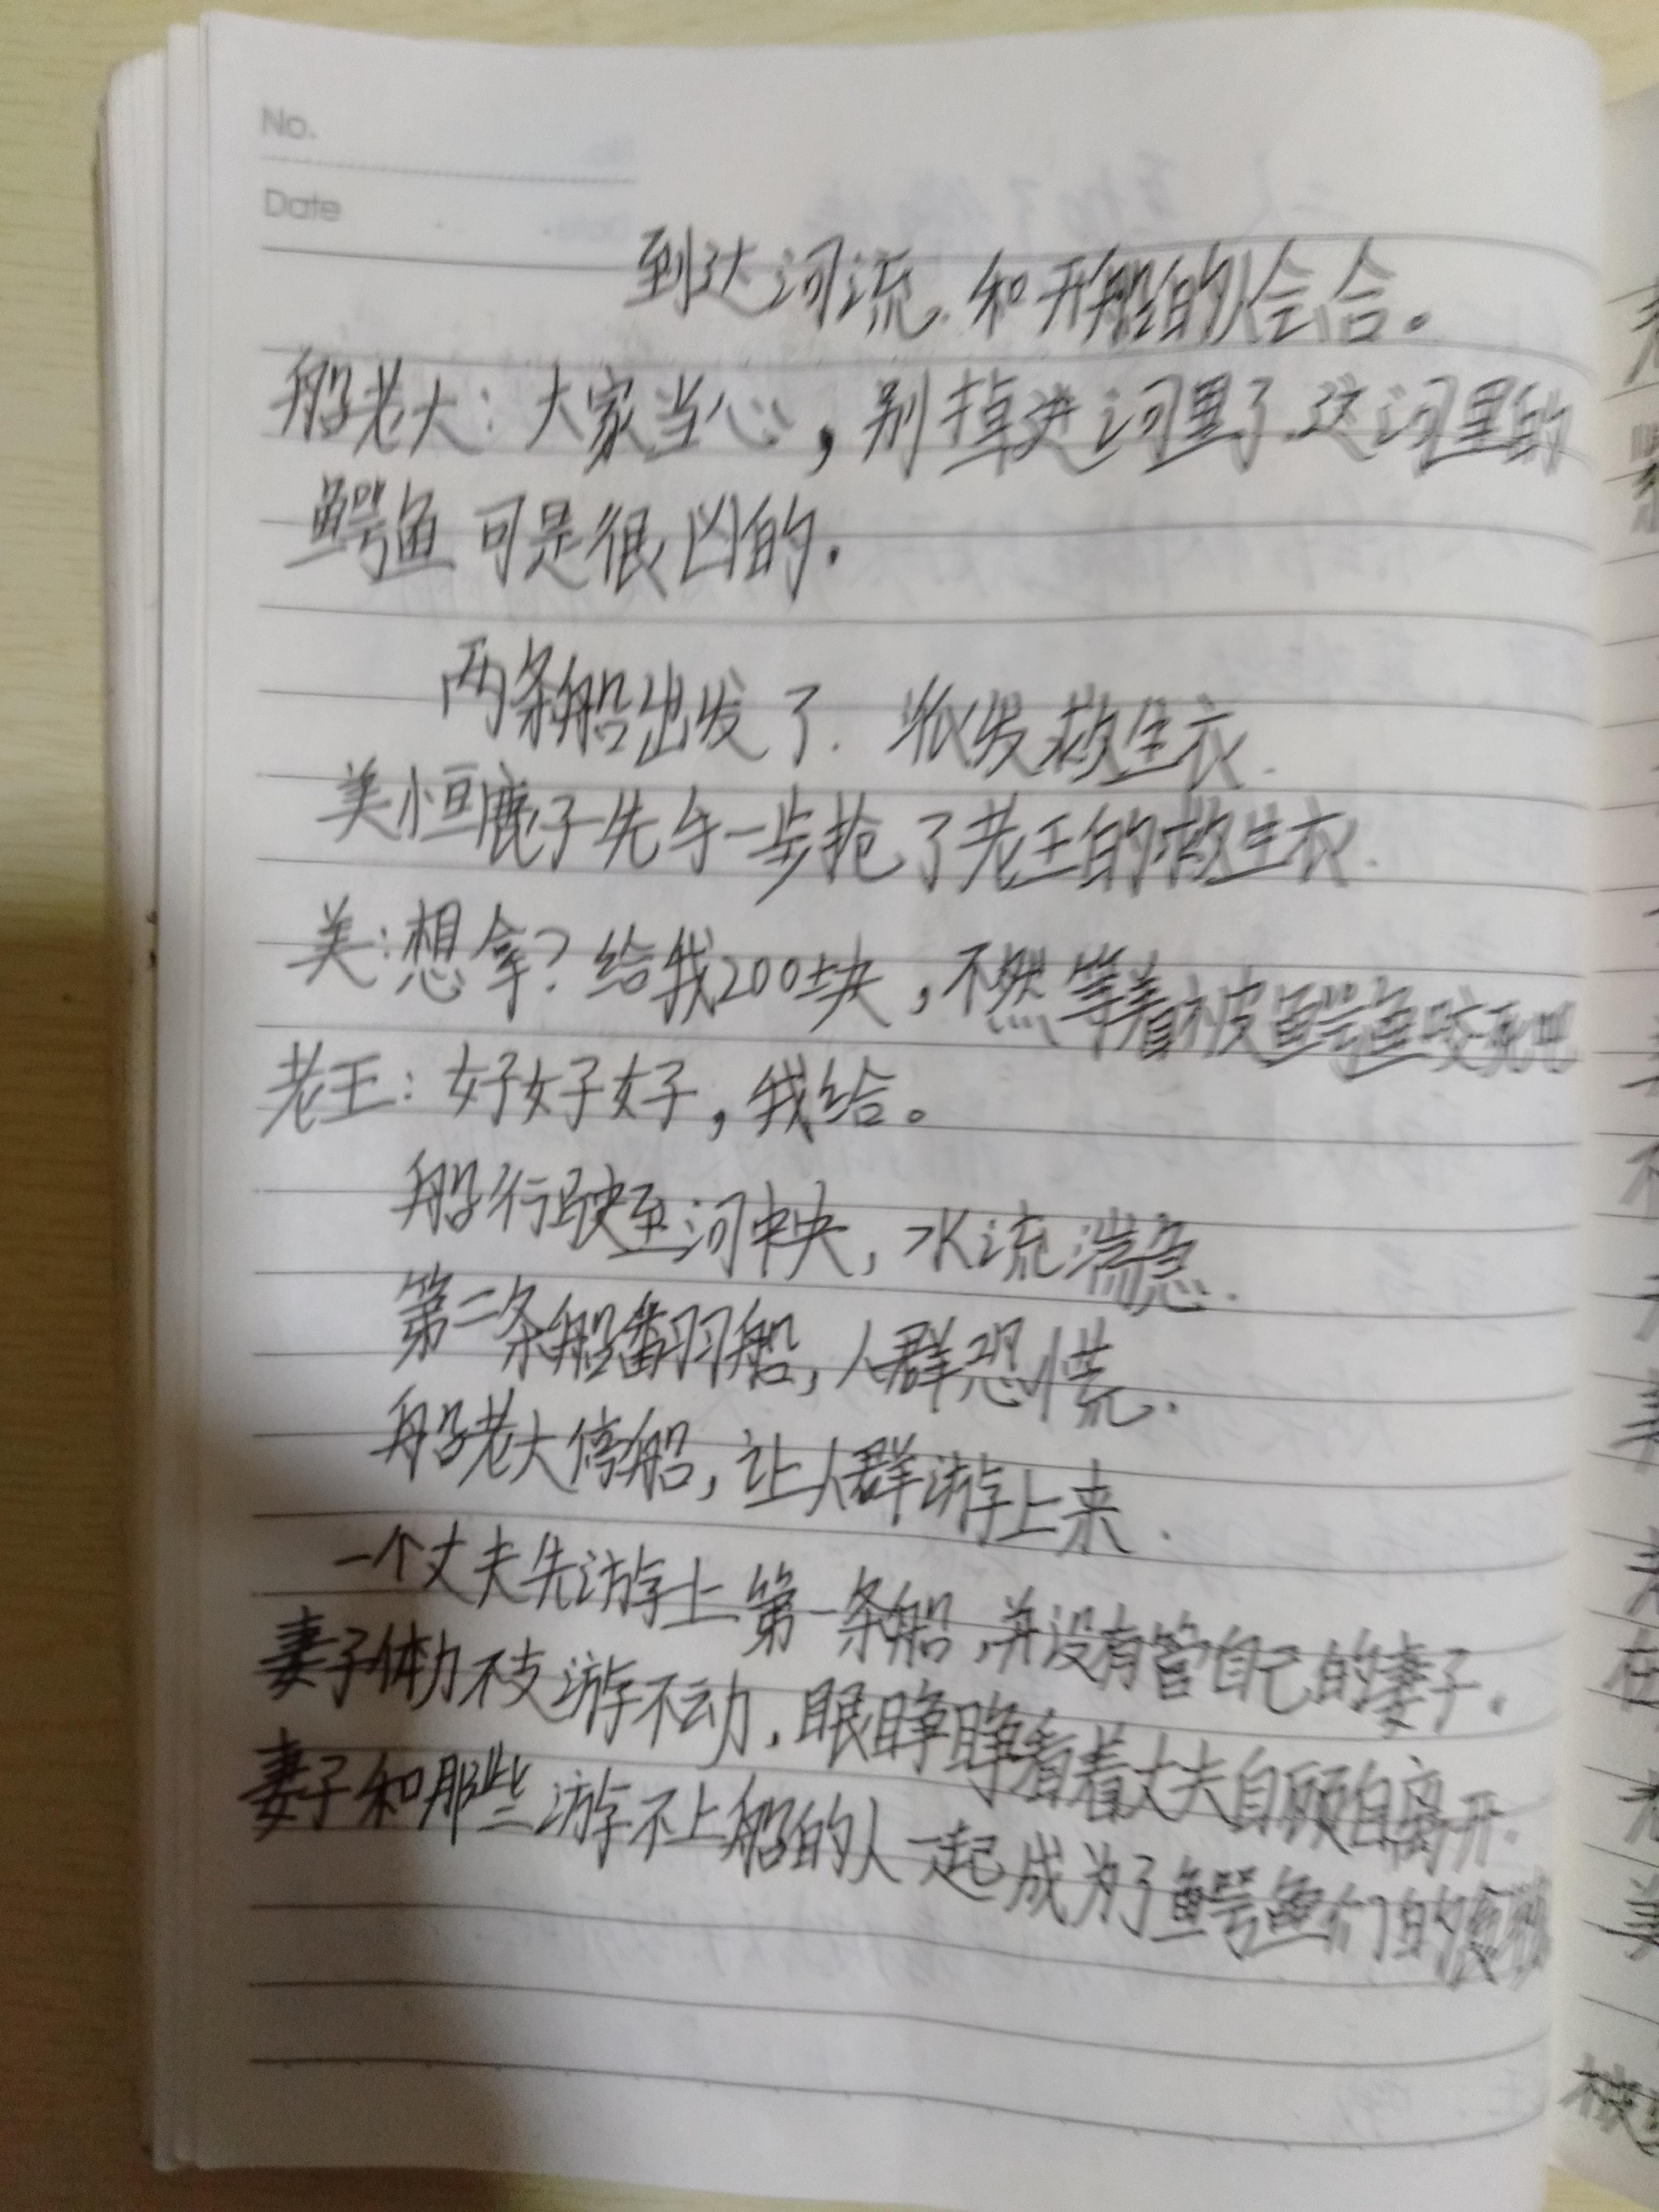 No.
Date
到达河流.和开船的人会合。
船老大:大家当心,别掉进河里了.这河里的
鳄鱼可是很凶的.
两条船出发了.派发救生衣.
美恒鹿子先手一步抢了老王的救生衣.
美:想拿?给我200块,不然等着被鳄鱼咬死吧
老王:好好好,我给。
船行驶至河中央,水流湍急.
第二条船翻船,人群恐慌.
船老大停船,让人群游上来.
一个丈夫先游上第一条船,并没有管自己的妻子.
妻子体力不支游不动.眼睁睁看着丈夫自顾自离开.
妻子和那些游不上船的人一起成为了鳄鱼们的食物